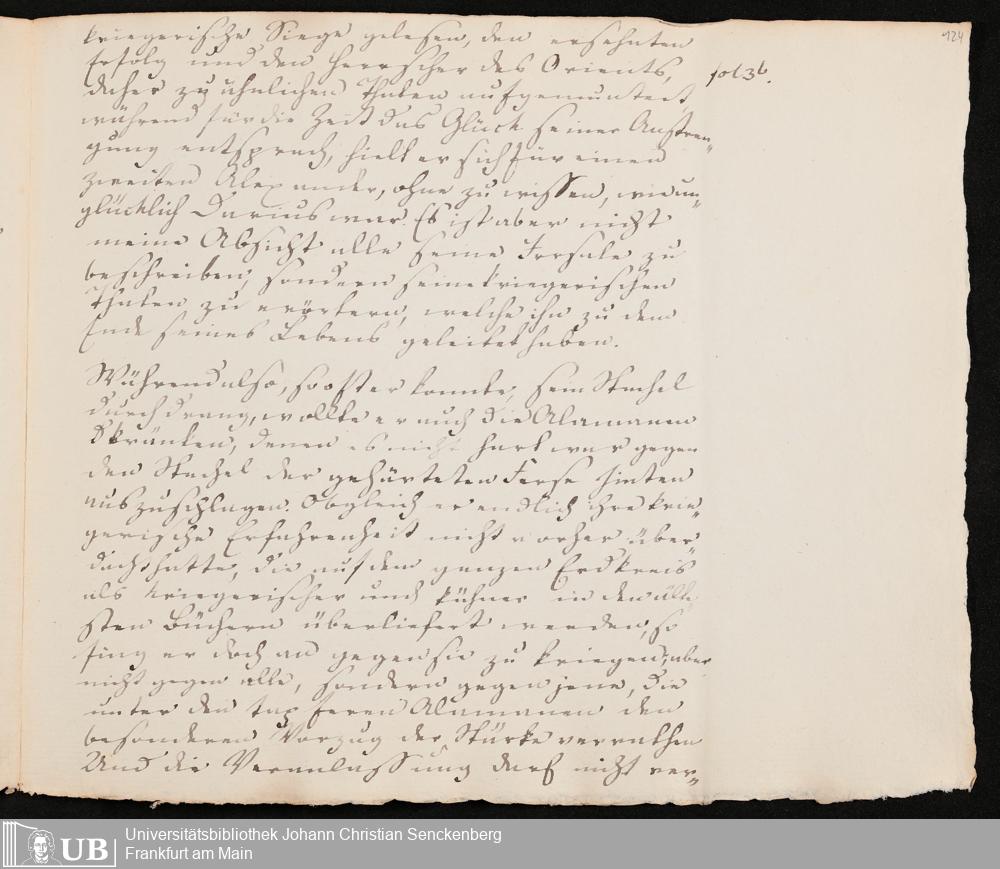 124
kriegerische Siege gelesen, den ersehnten
Erfolg und den Herrscher des Orients,
fol 36.
daher zu ähnlichen Thaten aufgemuntert,
während für die Zeit das Glück seiner Anstren„
gung entsprach, hielt er sich für einen
zweiten Alexander, ohne zu wissen, wie un„
glücklich Darius war. Es ist aber nicht
meine Absicht alle seine Irrsale zu
beschreiben, sondern seine kriegerischen
Thaten zu erörtern, welche ihn zu dem
Ende seines Lebens geleitet haben.
Während also, so oft er konnte, sein Stachel
durchdrang, wollte er auch die Alamanen
kränken, denen es nicht hart war gegen
den Stachel der gehärteten Ferse hinten
auszuschlagen. Obgleich er endlich ihre krie„
gerische Erfahrenheit nicht vorher über„
dacht hatte, die auf dem ganzen Erdkreis
als kriegerischer und kühner in den älte
sten Büchern überliefert werden, so
fing er doch an gegen sie zu kriegen, aber
nicht gegen alle, sondern gegen jene, die
unter den tapferen Alamanen den
besonderen Vorzug der Stärke verrathen
Und die Veranlassung darf nicht ver„
UB
Universitätsbibliothek Johann Christian Senckenberg
Frankfurt am Main